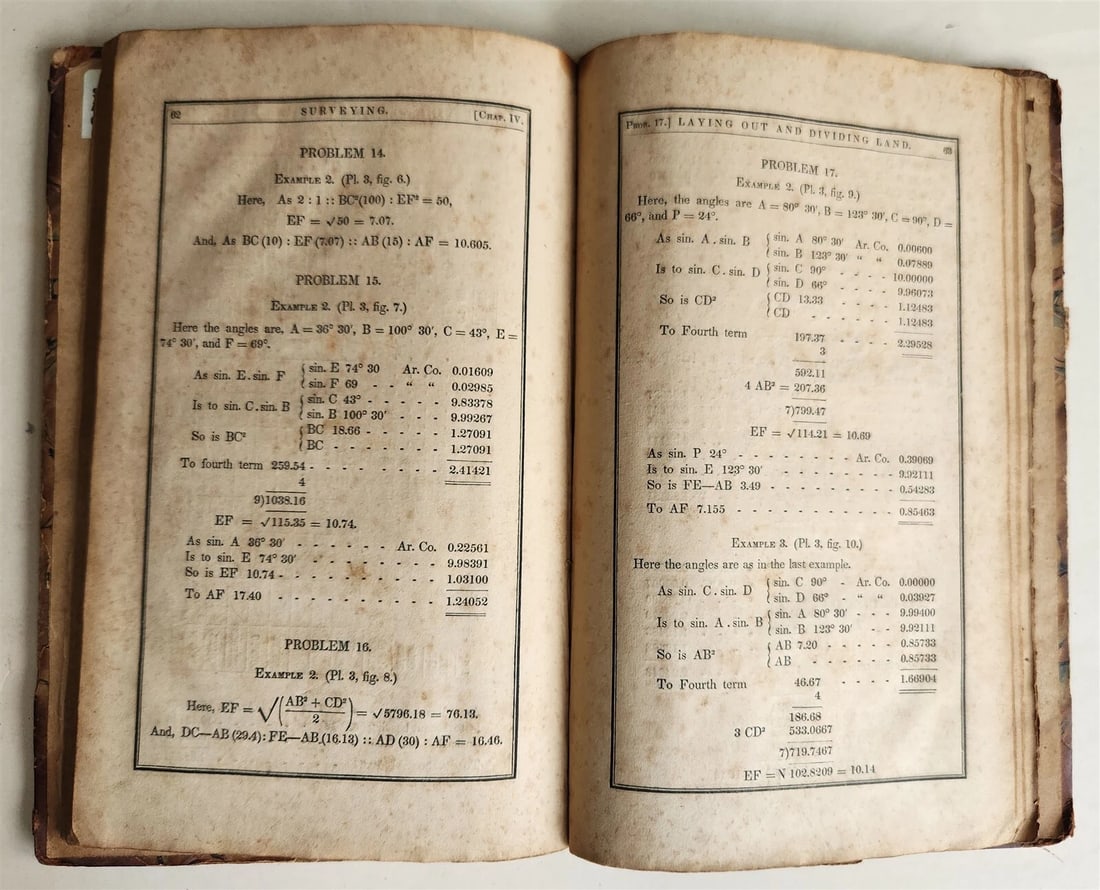 62 SURVEYING. [CHAP. IV.
PROBLEM 14.
EXAMPLE 2. (Pl. 3, fig. 6.)
Here, As 2 : 1 :: BC²(100) : EF² = 50,
EF = √50 = 7.07.
And, As BC (10) : EF (7.07) :: AB (15) : AF = 10.605.
PROBLEM 15.
EXAMPLE 2. (Pl. 3, fig. 7.)
Here the angles are, A = 36° 30′, B = 100° 30′, C = 43°, E =
74° 30′, and F = 69°.
As sin. E . sin. F { sin. E 74° 30 Ar. Co. 0.01609
{ sin. F 69 - - “ “ 0.02985
Is to sin. C . sin. B { sin. C 43° - - - - - 9.83378
{ sin. B 100° 30′ - - - 9.99267
So is BC² { BC 18.66 - - - - - 1.27091
{ BC - - - - - - - 1.27091
To fourth term 259.54 - - - - - - - - 2.41421
4
9)1038.16
EF = √115.35 = 10.74.
As sin. A 36° 30′ - - - - - - Ar. Co. 0.22561
Is to sin. E 74° 30′ - - - - - - - - 9.98391
So is EF 10.74 - - - - - - - - - - 1.03100
To AF 17.40 - - - - - - - - - - 1.24052
PROBLEM 16.
EXAMPLE 2. (Pl. 3, fig. 8.)
Here, EF = √(AB² + CD² / 2) = √5796.18 = 76.13.
And, DC—AB (29.4) : FE—AB (16.13) :: AD (30) : AF = 16.46.
PROB. 17.] LAYING OUT AND DIVIDING LAND. 63
PROBLEM 17.
EXAMPLE 2. (Pl. 3, fig. 9.)
Here, the angles are A = 80° 30′, B = 123° 30′, C = 90°, D =
66°, and P = 24°.
As sin. A . sin. B { sin. A 80° 30′ Ar. Co. 0.00600
{ sin. B 123° 30′ “ “ 0.07889
Is to sin. C . sin. D { sin. C 90° - - - - 10.00000
{ sin. D 66° - - - - - 9.96073
So is CD² { CD 13.33 - - - - - 1.12483
{ CD - - - - - - 1.12483
To Fourth term 197.37 - - - - 2.29528
3
592.11
4 AB² = 207.36
7)799.47
EF = √114.21 = 10.69
As sin. P 24° - - - - - - - - Ar. Co. 0.39069
Is to sin. E 123° 30′ - - - - - - - - 9.92111
So is FE—AB 3.49 - - - - - - - - - 0.54283
To AF 7.155 - - - - - - - - - - - 0.85463
EXAMPLE 3. (Pl. 3, fig. 10.)
Here the angles are as in the last example.
As sin. C . sin. D { sin. C 90° - Ar. Co. 0.00000
{ sin. D 66° - “ “ 0.03927
Is to sin. A . sin. B { sin. A 80° 30′ - - - 9.99400
{ sin. B 123° 30′ - - 9.92111
So is AB² { AB 7.20 - - - - - 0.85733
{ AB - - - - - - 0.85733
To Fourth term 46.67 - - - - 1.66904
4
186.68
3 CD² 533.0667
7)719.7467
EF = √ 102.8209 = 10.14